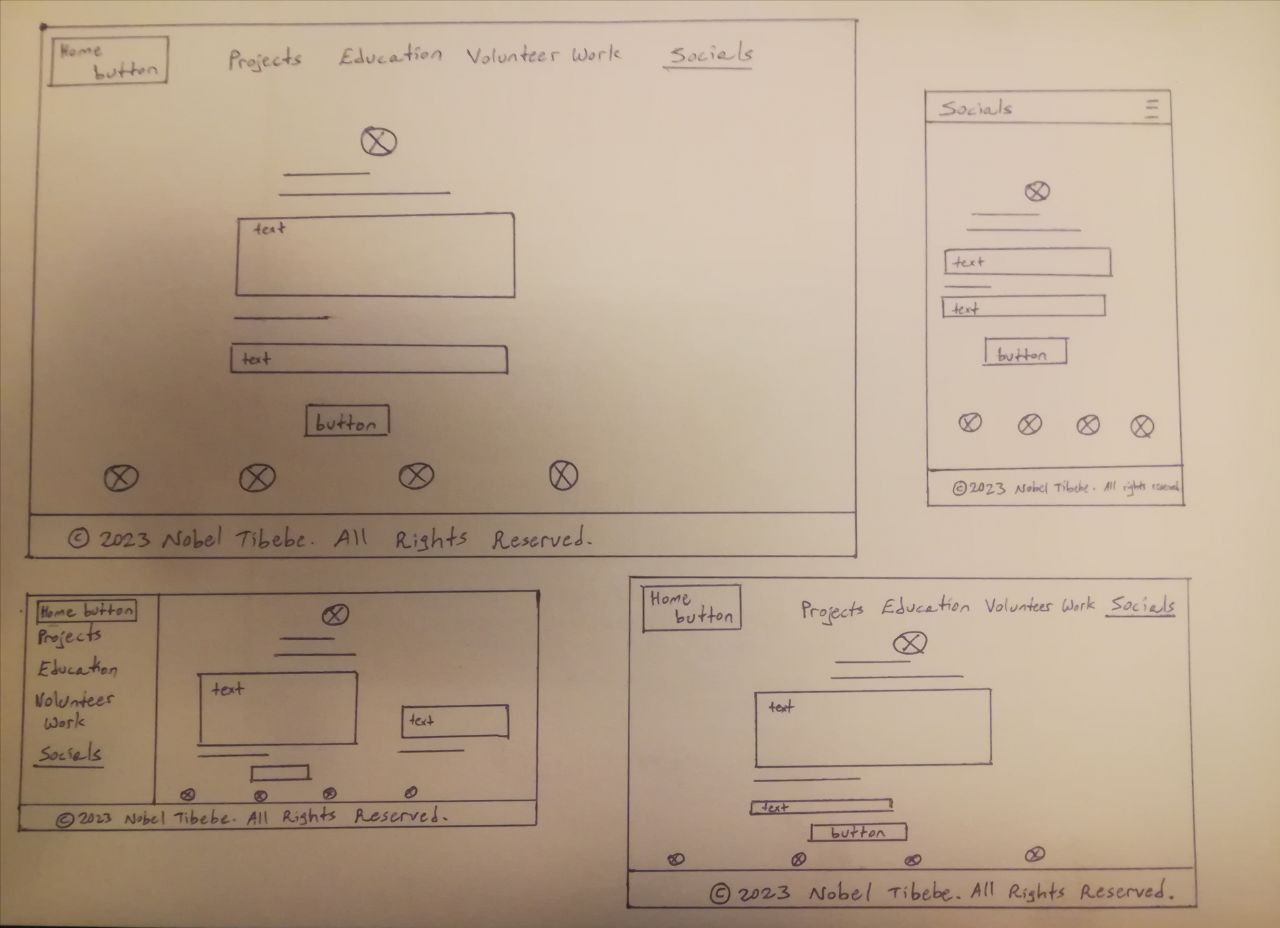 Home
button
Projects Education Volunteer Work Socials
text
text
button
© 2023 Nobel Tibebe. All Rights Reserved.
Socials
text
text
button
© 2023 Nobel Tibebe. All rights reserved
Home button
Projects
Education
Volunteer
Work
Socials
text
text
© 2023 Nobel Tibebe. All Rights Reserved.
Home
button
Projects Education Volunteer Work Socials
text
text
button
© 2023 Nobel Tibebe. All Rights Reserved.